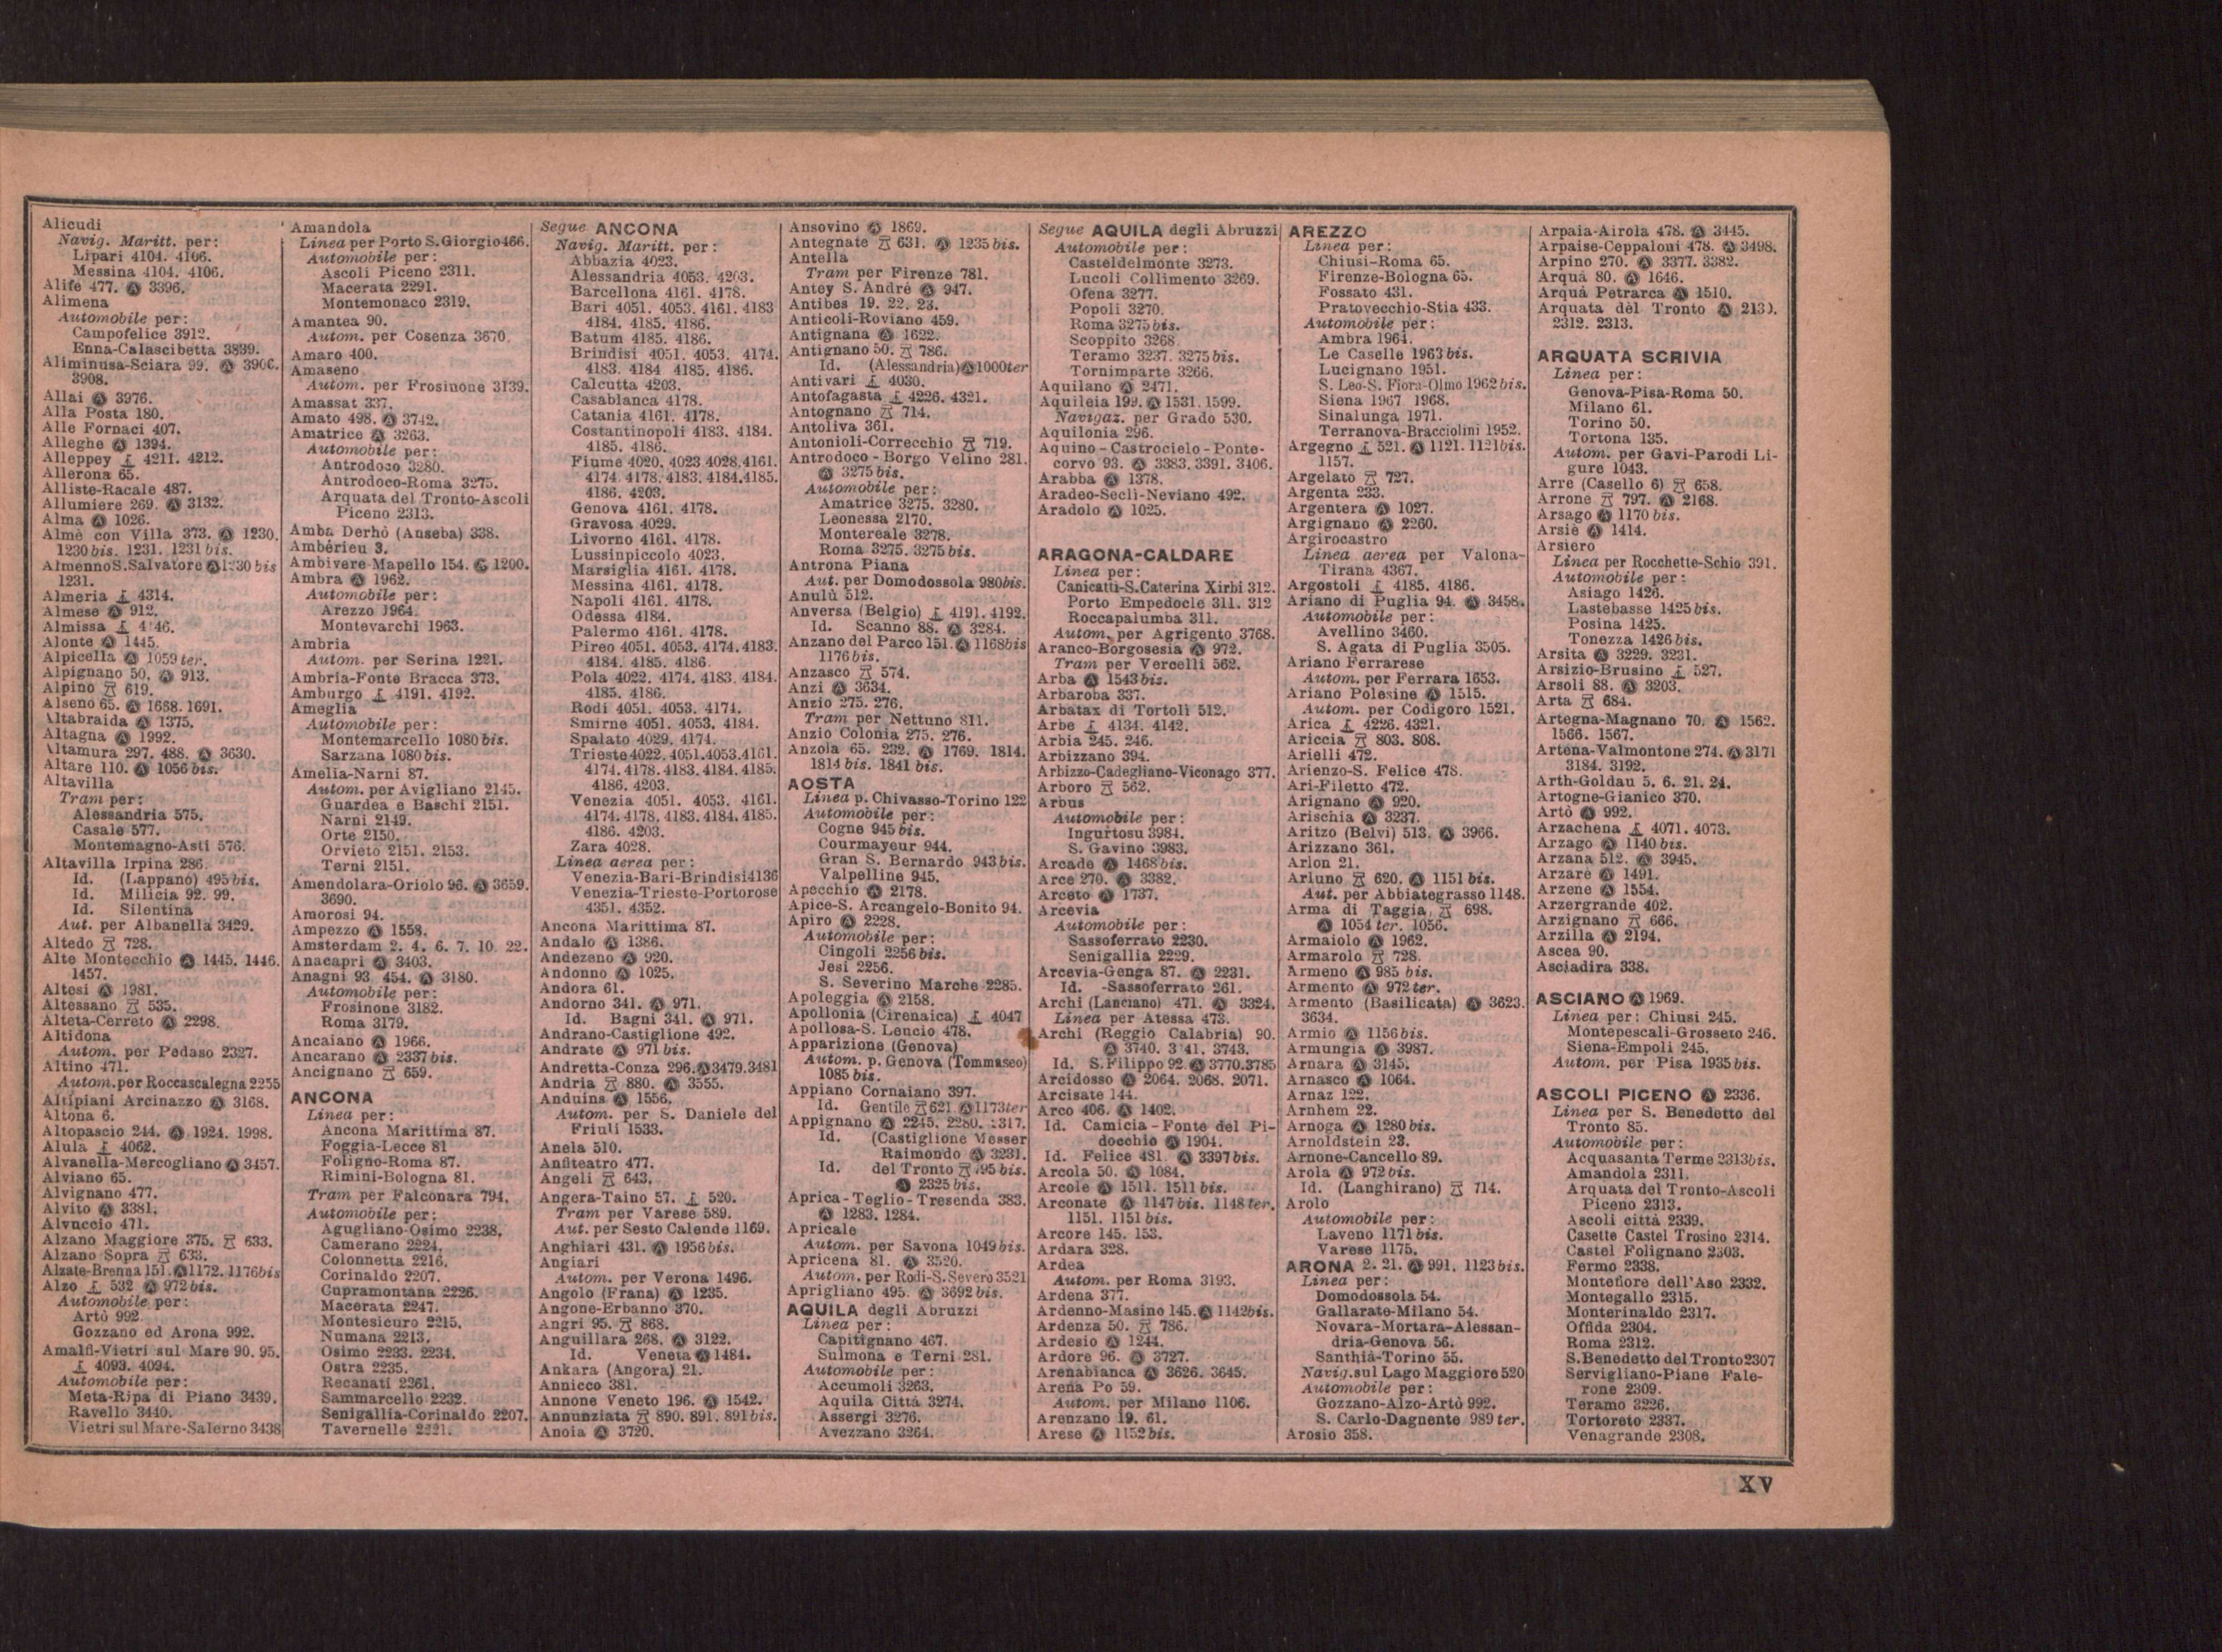 Alicudi
Navig. Maritt. per:
Lipari 4104. 4106.
Messina 4104. 4106.
Alife 477. Ⓐ 3396.
Alimena
Automobile per:
Campofelice 3912.
Enna-Calascibetta 3839.
Aliminusa-Sciara 99. Ⓐ 3906.
3908.
Allai Ⓐ 3976.
Alla Posta 180.
Alle Fornaci 407.
Alleghe Ⓐ 1394.
Alleppey 4211. 4212.
Allerona 65.
Alliste-Racale 487.
Allumiere 269. Ⓐ 3132.
Alma Ⓐ 1026.
Almè con Villa 373. Ⓐ 1230.
1230 bis. 1231. 1231 bis.
Almenno S. Salvatore Ⓐ 1230 bis
1231.
Almeria 4314.
Almese Ⓐ 912.
Almissa
Alonte Ⓐ 1445.
Alpicella Ⓐ 1059 ter.
Alpignano 50. Ⓐ 913.
Alpino 619.
Alseno 65. Ⓐ 1688. 1691.
Altabraida Ⓐ 1375.
Altagna Ⓐ 1992.
Altamura 297. 488. Ⓐ 3630.
Altare 110. Ⓐ 1056 bis.
Altavilla
Tram per:
Alessandria 575.
Casale 577.
Montemagno-Asti 576.
Altavilla Irpina 286.
Id. (Lappano) 495 bis.
Id. Milicia 92. 99.
Id. Silentina
Aut. per Albanella 3429.
Altedo 728.
Alte Montecchio Ⓐ 1445. 1446.
1457.
Altesi Ⓐ 1981.
Altessano 535.
Alteta-Cerreto Ⓐ 2298.
Altidona
Autom. per Pedaso 2327.
Altino 471.
Autom. per Roccascalegna 2255
Altipiani Arcinazzo Ⓐ 3168.
Altona 6.
Altopascio 244. Ⓐ 1924. 1998.
Alula 4062.
Alvanella-Mercogliano Ⓐ 3457.
Alviano 65.
Alvignano 477.
Alvito Ⓐ 3381.
Alvuccio 471.
Alzano Maggiore 375. 633.
Alzano Sopra 633.
Alzate-Brenna 151. Ⓐ 1172. 1176 bis
Alzo 532 Ⓐ 972 bis.
Automobile per:
Artò 992.
Gozzano ed Arona 992.
Amalfi-Vietri sul Mare 90. 95.
4093. 4094.
Automobile per:
Meta-Ripa di Piano 3439.
Ravello 3440.
Vietri sul Mare-Salerno 3438
Amandola
Linea per Porto S. Giorgio 466.
Automobile per:
Ascoli Piceno 2311.
Macerata 2291.
Montemonaco 2319.
Amantea 90.
Autom. per Cosenza 3670.
Amaro 400.
Amaseno
Autom. per Frosinone 3139.
Amassat 337.
Amato 498. Ⓐ 3742.
Amatrice Ⓐ 3263.
Automobile per:
Antrodoco 3280.
Antrodoco-Roma 3275.
Arquata del Tronto-Ascoli
Piceno 2313.
Amba Derhò (Anseba) 338.
Ambérieu 3.
Ambivere-Mapello 154. Ⓐ 1200.
Ambra Ⓐ 1962.
Automobile per:
Arezzo 1964.
Montevarchi 1963.
Ambria
Autom. per Serina 1221.
Ambria-Fonte Bracca 373.
Amburgo 4191. 4192.
Ameglia
Automobile per:
Montemarcello 1080 bis.
Sarzana 1080 bis.
Amelia-Narni 87.
Autom. per Avigliano 2145.
Guardea e Baschi 2151.
Narni 2149.
Orte 2150.
Orvieto 2151. 2153.
Terni 2151.
Amendolara-Oriolo 96. Ⓐ 3659.
3690.
Amorosi 94.
Ampezzo Ⓐ 1558.
Amsterdam 2. 4. 6. 7. 10. 22.
Anacapri Ⓐ 3403.
Anagni 93. 454. Ⓐ 3180.
Automobile per:
Frosinone 3182.
Roma 3179.
Ancaiano Ⓐ 1966.
Ancarano Ⓐ 2337 bis.
Ancignano 659.
ANCONA
Linea per:
Ancona Marittima 87.
Foggia-Lecce 81
Foligno-Roma 87.
Rimini-Bologna 81.
Tram per Falconara 794.
Automobile per:
Agugliano-Osimo 2238.
Camerano 2224.
Colonnetta 2216.
Corinaldo 2207.
Cupramontana 2226.
Macerata 2247.
Montesicuro 2215.
Numana 2213.
Osimo 2233. 2234.
Ostra 2235.
Recanati 2261.
Sammarcello 2232.
Senigallia-Corinaldo 2207.
Tavernelle 2221.
Segue ANCONA
Navig. Maritt. per:
Abbazia 4023.
Alessandria 4053. 4203.
Barcellona 4161. 4178.
Bari 4051. 4053. 4161. 4183
4184. 4185. 4186.
Batum 4185. 4186.
Brindisi 4051. 4053. 4174.
4183. 4184. 4185. 4186.
Calcutta 4203.
Casablanca 4178.
Catania 4161. 4178.
Costantinopoli 4183. 4184.
4185. 4186.
Fiume 4020. 4023. 4028. 4161.
4174. 4178. 4183. 4184. 4185.
4186. 4203.
Genova 4161. 4178.
Gravosa 4029.
Livorno 4161. 4178.
Lussinpiccolo 4023.
Marsiglia 4161. 4178.
Messina 4161. 4178.
Napoli 4161. 4178.
Odessa 4184.
Palermo 4161. 4178.
Pireo 4051. 4053. 4174. 4183.
4184. 4185. 4186.
Pola 4022. 4174. 4183. 4184.
4185. 4186.
Rodi 4051. 4053. 4174.
Smirne 4051. 4053. 4184.
Spalato 4029. 4174.
Trieste 4022. 4051. 4053. 4161.
4174. 4178. 4183. 4184. 4185.
4186. 4203.
Venezia 4051. 4053. 4161.
4174. 4178. 4183. 4184. 4185.
4186. 4203.
Zara 4028.
Linea aerea per:
Venezia-Bari-Brindisi 4136
Venezia-Trieste-Portorose
4351. 4352.
Ancona Marittima 87.
Andalo Ⓐ 1386.
Andezeno Ⓐ 920.
Andonno Ⓐ 1025.
Andora 61.
Andorno 341. Ⓐ 971.
Id. Bagni 341. Ⓐ 971.
Andrano-Castiglione 492.
Andrate Ⓐ 971 bis.
Andretta-Conza 296. Ⓐ 3479. 3481
Andria 880. Ⓐ 3555.
Anduins Ⓐ 1556.
Autom. per S. Daniele del
Friuli 1533.
Anela 510.
Anfiteatro 477.
Angeli 643.
Angera-Taino 57. 520.
Tram per Varese 589.
Aut. per Sesto Calende 1169.
Anghiari 431. Ⓐ 1956 bis.
Angiari
Autom. per Verona 1496.
Angolo (Frana) Ⓐ 1235.
Angone-Erbanno 370.
Angri 95. 868.
Anguillara 268. Ⓐ 3122.
Id. Veneta Ⓐ 1484.
Ankara (Angora) 21.
Annicco 381.
Annone Veneto 196. Ⓐ 1542.
Annunziata 890. 891. 891 bis.
Anoia Ⓐ 3720.
Ansovino Ⓐ 1869.
Antegnate 631. Ⓐ 1235 bis.
Antella
Tram per Firenze 781.
Antey S. André Ⓐ 947.
Antibes 19. 22. 23.
Anticoli-Roviano 459.
Antignana Ⓐ 1622.
Antignano 50. 786.
Id. (Alessandria) Ⓐ 1000 ter
Antivari 4030.
Antofagasta 4226. 4321.
Antognano 714.
Antoliva 361.
Antonioli-Correcchio 719.
Antrodoco-Borgo Velino 281.
Ⓐ 3275 bis.
Automobile per:
Amatrice 3275. 3280.
Leonessa 2170.
Montereale 3278.
Roma 3275. 3275 bis.
Antrona Piana
Aut. per Domodossola 980 bis.
Anulù 512.
Anversa (Belgio) 4191. 4192.
Id. Scanno 88. Ⓐ 3284.
Anzano del Parco 151. Ⓐ 1168 bis
1176 bis.
Anzasco 574.
Anzi Ⓐ 3634.
Anzio 275. 276.
Tram per Nettuno 811.
Anzio Colonia 275. 276.
Anzola 65. 232. Ⓐ 1769. 1814.
1814 bis. 1841 bis.
AOSTA
Linea p. Chivasso-Torino 122
Automobile per:
Cogne 945 bis.
Courmayeur 944.
Gran S. Bernardo 943 bis.
Valpelline 945.
Apecchio Ⓐ 2178.
Apice-S. Arcangelo-Bonito 94.
Apiro Ⓐ 2228.
Automobile per:
Cingoli 2256 bis.
Jesi 2256.
S. Severino Marche 2285.
Apoleggia Ⓐ 2158.
Apollonia (Cirenaica) 4047
Apollosa-S. Leucio 478.
Apparizione (Genova)
Autom. p. Genova (Tommaseo)
1085 bis.
Appiano Cornaiano 397.
Id. Gentile 621. Ⓐ 1173 ter
Appignano Ⓐ 2245. 2280. 2317.
Id. (Castiglione Messer
Raimondo Ⓐ 3231.
Id. del Tronto 795 bis.
Ⓐ 2325 bis.
Aprica-Teglio-Tresenda 383.
Ⓐ 1283. 1284.
Apricale
Autom. per Savona 1049 bis.
Apricena 81. Ⓐ 3520.
Autom. per Rodi-S. Severo 3521
Aprigliano 495. Ⓐ 3692 bis.
AQUILA degli Abruzzi
Linea per:
Capitignano 467.
Sulmona e Terni 281.
Automobile per:
Accumoli 3263.
Aquila Città 3274.
Assergi 3276.
Avezzano 3264.
Segue AQUILA degli Abruzzi
Automobile per:
Casteldelmonte 3273.
Lucoli Collimento 3269.
Ofena 3277.
Popoli 3270.
Roma 3275 bis.
Scoppito 3268.
Teramo 3237. 3275 bis.
Tornimparte 3266.
Aquilano Ⓐ 2471.
Aquileia 199. Ⓐ 1531. 1599.
Navigaz. per Grado 530.
Aquilonia 296.
Aquino-Castrocielo-Ponte-
corvo 93. Ⓐ 3383. 3391. 3406.
Arabba Ⓐ 1378.
Aradeo-Secli-Neviano 492.
Aradolo Ⓐ 1025.
ARAGONA-CALDARE
Linea per:
Canicattì-S. Caterina Xirbi 312.
Porto Empedocle 311. 312
Roccapalumba 311.
Autom. per Agrigento 3768.
Aranco-Borgosesia Ⓐ 972.
Tram per Vercelli 562.
Arba Ⓐ 1543 bis.
Arbaroba 337.
Arbatax di Tortolì 512.
Arbe 4134. 4142.
Arbia 245. 246.
Arbizzano 394.
Arbizzo-Cadegliano-Viconago 377.
Arboro 562.
Arbus
Automobile per:
Ingurtosu 3984.
S. Gavino 3983.
Arcade Ⓐ 1468 bis.
Arce 270. Ⓐ 3382.
Arceto Ⓐ 1737.
Arcevia
Automobile per:
Sassoferrato 2230.
Senigallia 2229.
Arcevia-Genga 87. Ⓐ 2231.
Id. -Sassoferrato 261.
Archi (Lanciano) 471. Ⓐ 3324.
Linea per Atessa 473.
Archi (Reggio Calabria) 90.
Ⓐ 3740. 3743.
Id. S. Filippo 92. Ⓐ 3770. 3785
Arcidosso Ⓐ 2064. 2068. 2071.
Arcisate 144.
Arco 406. Ⓐ 1402.
Id. Camicia-Fonte del Pi-
docchio Ⓐ 1904.
Id. Felice 481. Ⓐ 3397 bis.
Arcola 50. Ⓐ 1084.
Arcole Ⓐ 1511. 1511 bis.
Arconate Ⓐ 1147 bis. 1148 ter.
1151. 1151 bis.
Arcore 145. 153.
Ardara 328.
Ardea
Autom. per Roma 3193.
Ardena 377.
Ardenno-Masino 145. Ⓐ 1142 bis.
Ardenza 50. 786.
Ardesio Ⓐ 1244.
Ardore 96. Ⓐ 3727.
Arenabianca Ⓐ 3626. 3645.
Arena Po 59.
Autom. per Milano 1106.
Arenzano 19. 61.
Arese Ⓐ 1152 bis.
AREZZO
Linea per:
Chiusi-Roma 65.
Firenze-Bologna 65.
Fossato 431.
Pratovecchio-Stia 433.
Automobile per:
Ambra 1964.
Le Caselle 1963 bis.
Lucignano 1951.
S. Leo-S. Fiora-Olmo 1962 bis.
Siena 1967. 1968.
Sinalunga 1971.
Terranova-Bracciolini 1952.
Argegno 521. Ⓐ 1121. 1121 bis.
1157.
Argelato 727.
Argenta 233.
Argentera Ⓐ 1027.
Argignano Ⓐ 2260.
Argirocastro
Linea aerea per Valona-
Tirana 4367.
Argostoli 4185. 4186.
Ariano di Puglia 94. Ⓐ 3458.
Automobile per:
Avellino 3460.
S. Agata di Puglia 3505.
Ariano Ferrarese
Autom. per Ferrara 1653.
Ariano Polesine Ⓐ 1515.
Autom. per Codigoro 1521.
Arica 4226. 4321.
Ariccia 803. 808.
Arielli 472.
Arienzo-S. Felice 478.
Ari-Filetto 472.
Arignano Ⓐ 920.
Arischia Ⓐ 3237.
Aritzo (Belvì) 513. Ⓐ 3966.
Arizzano 361.
Arlon 21.
Arluno 620. Ⓐ 1151 bis.
Aut. per Abbiategrasso 1148.
Arma di Taggia 698.
Ⓐ 1054 ter. 1056.
Armaiolo Ⓐ 1962.
Armarolo 728.
Armeno Ⓐ 985 bis.
Armento Ⓐ 972 ter.
Armento (Basilicata) Ⓐ 3623.
3634.
Armio Ⓐ 1156 bis.
Armungia Ⓐ 3987.
Arnara Ⓐ 3145.
Arnasco Ⓐ 1064.
Arnaz 122.
Arnhem 22.
Arnoga Ⓐ 1280 bis.
Arnoldstein 23.
Arnone-Cancello 89.
Arola Ⓐ 972 bis.
Id. (Langhirano) 714.
Arolo
Automobile per:
Laveno 1171 bis.
Varese 1175.
ARONA 2. 21. Ⓐ 991. 1123 bis.
Linea per:
Domodossola 54.
Gallarate-Milano 54.
Novara-Mortara-Alessan-
dria-Genova 56.
Santhià-Torino 55.
Navig. sul Lago Maggiore 520
Automobile per:
Gozzano-Alzo-Artò 992.
S. Carlo-Dagnente 989 ter.
Arosio 358.
Arpaia-Airola 478. Ⓐ 3445.
Arpaise-Ceppaloni 478. Ⓐ 3498.
Arpino 270. Ⓐ 3377. 3382.
Arquà 80. Ⓐ 1646.
Arquà Petrarca Ⓐ 1510.
Arquata del Tronto Ⓐ
2312. 2313.
ARQUATA SCRIVIA
Linea per:
Genova-Pisa-Roma 50.
Milano 61.
Torino 50.
Tortona 135.
Autom. per Gavi-Parodi Li-
gure 1043.
Arre (Casello 6) 658.
Arrone 797. Ⓐ 2168.
Arsago Ⓐ 1170 bis.
Arsiè Ⓐ 1414.
Arsiero
Linea per Rocchette-Schio 391.
Automobile per:
Asiago 1426.
Lastebasse 1425 bis.
Posina 1425.
Tonezza 1426 bis.
Arsita Ⓐ 3229. 3231.
Arsizio-Brusino 527.
Arsoli 88. Ⓐ 3203.
Arta 684.
Artegna-Magnano 70. Ⓐ 1562.
1566. 1567.
Artena-Valmontone 274. Ⓐ 3171
3184. 3192.
Arth-Goldau 5. 6. 21. 24.
Artogne-Gianico 370.
Artò Ⓐ 992.
Arzachena 4071. 4073.
Arzago Ⓐ 1140 bis.
Arzana 512. Ⓐ 3945.
Arzarè Ⓐ 1491.
Arzene Ⓐ 1554.
Arzergrande 402.
Arzignano 666.
Arzilla Ⓐ 2194.
Ascea 90.
Asciadira 338.
ASCIANO Ⓐ 1969.
Linea per: Chiusi 245.
Montepescali-Grosseto 246.
Siena-Empoli 245.
Autom. per Pisa 1935 bis.
ASCOLI PICENO Ⓐ 2336.
Linea per S. Benedetto del
Tronto 85.
Automobile per:
Acquasanta Terme 2313 bis.
Amandola 2311.
Arquata del Tronto-Ascoli
Piceno 2313.
Ascoli città 2339.
Casette Castel Trosino 2314.
Castel Folignano 2303.
Fermo 2338.
Montefiore dell'Aso 2332.
Montegallo 2315.
Monterinaldo 2317.
Offida 2304.
Roma 2312.
S. Benedetto del Tronto 2307
Servigliano-Piane Fale-
rone 2309.
Teramo 3226.
Tortoreto 2337.
Venagrande 2308.
XV